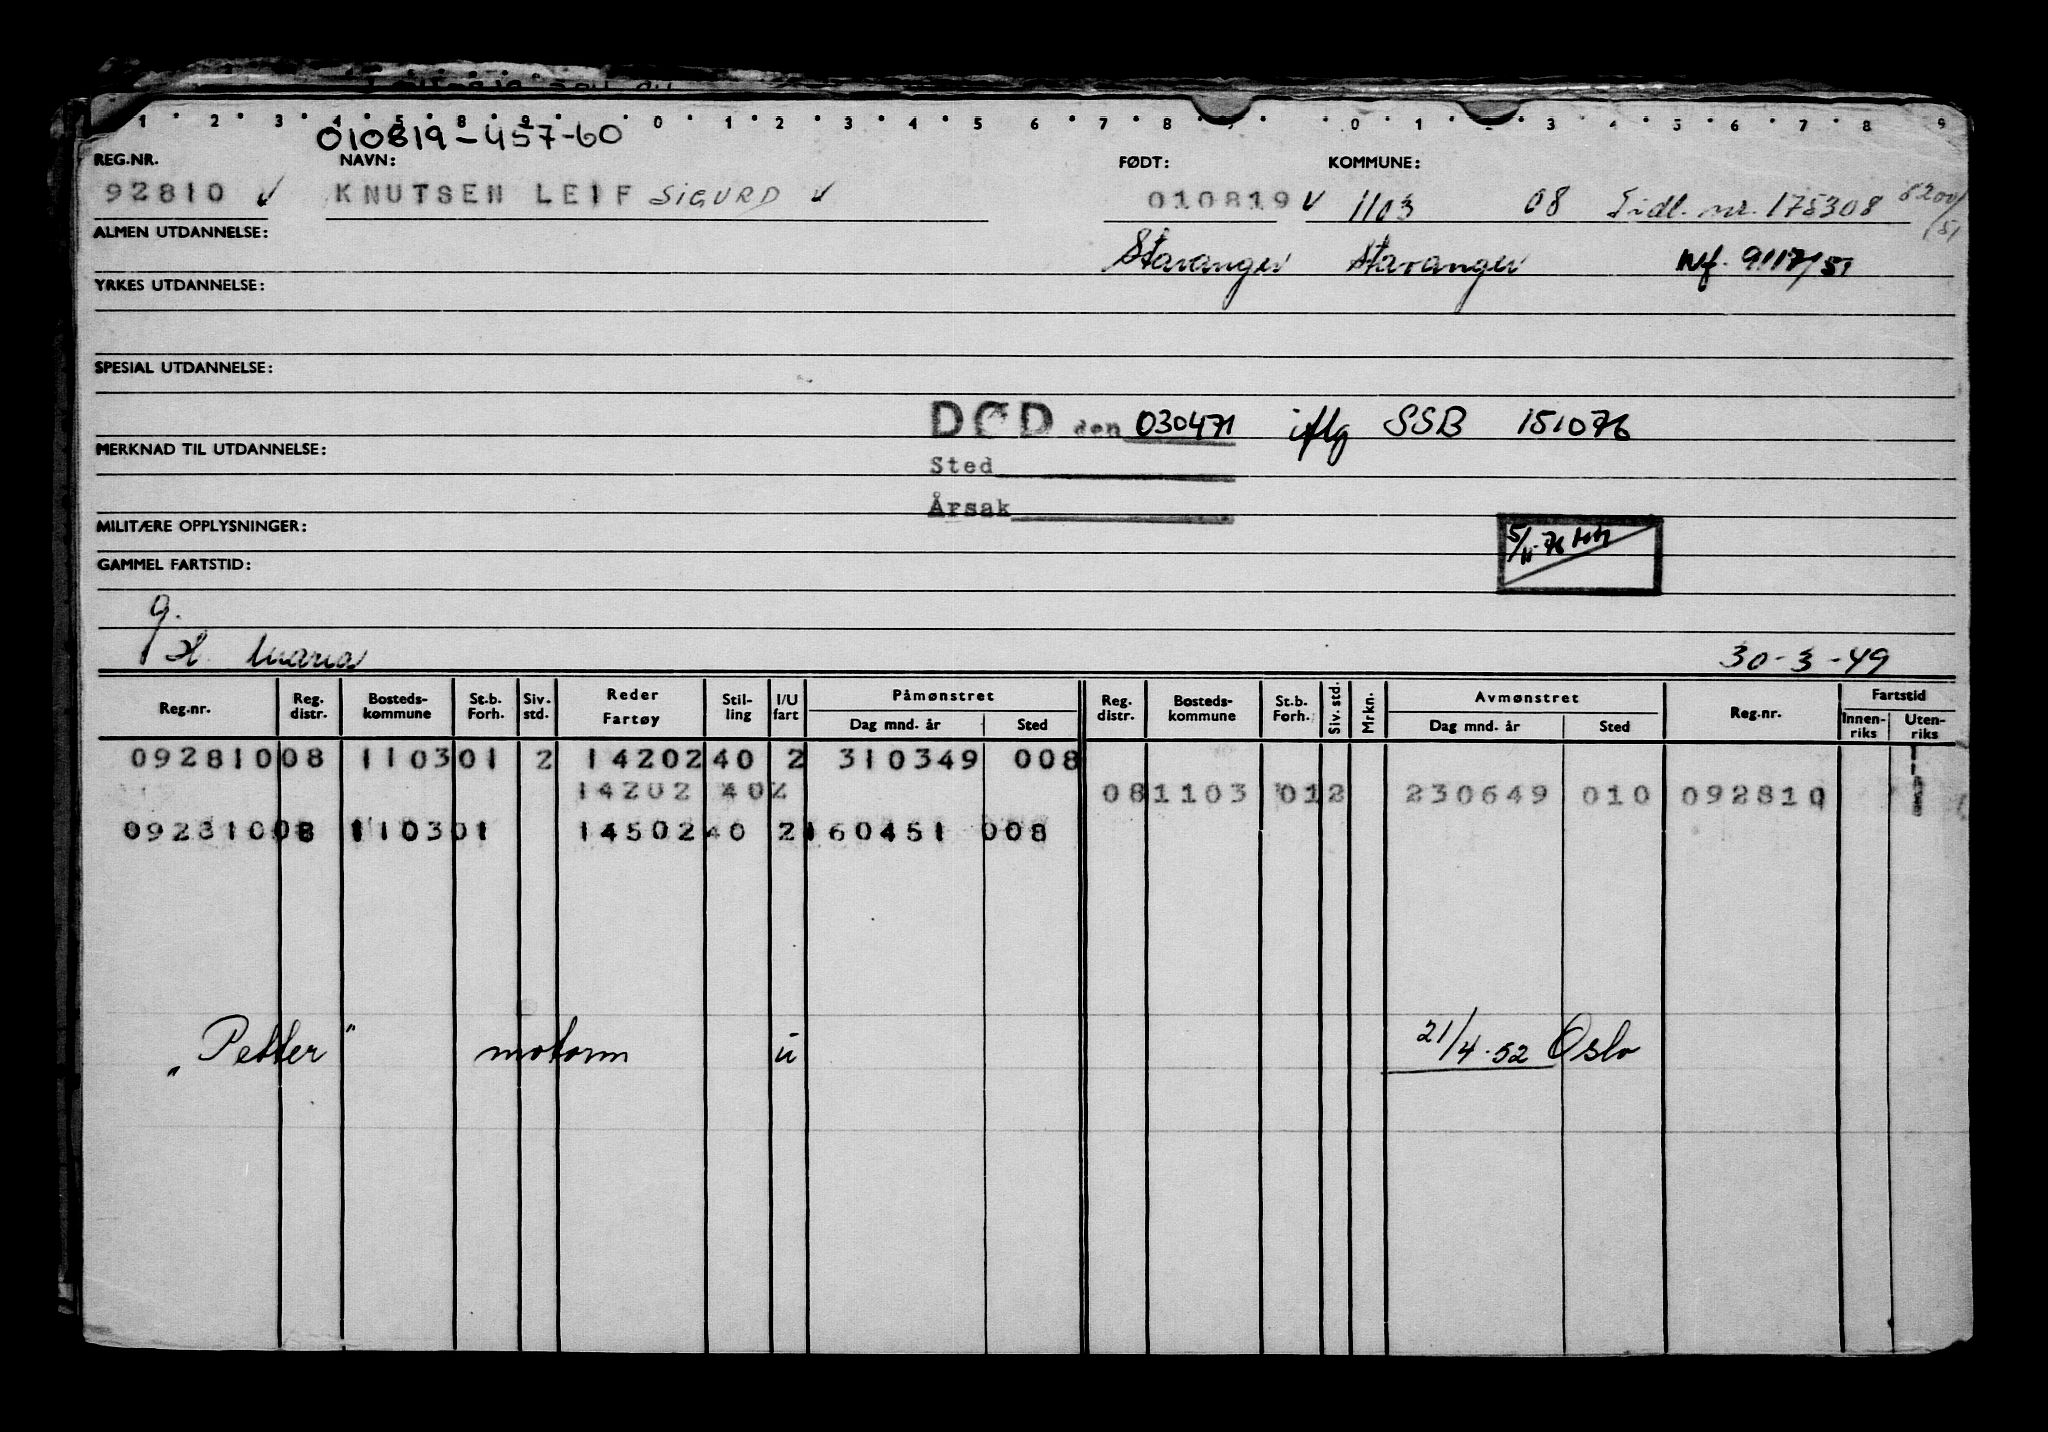 1 2 3 4 5 6 7 8 9 0 1 2 3 4 5 6 7 8 9 0 1 2 3 4 5 6 7 8 9
010819-457-60
REG.NR. NAVN: FØDT: KOMMUNE:
92810 ✓ KNUTSEN LEIF SIGURD ✓ 010819 ✓ 1103 08 Tidl. nr. 175308 8200/51
ALMEN UTDANNELSE: Stavanger Stavanger
YRKES UTDANNELSE:
SPESIAL UTDANNELSE:
DØD den 030471 iflg SSB 151076
MERKNAD TIL UTDANNELSE:
Sted
Årsak
MILITÆRE OPPLYSNINGER:
5/11-76
GAMMEL FARTSTID:
g.
H. Maria 30-3-49
Reg.nr. Reg. distr. Bosteds-kommune St.b. Forh. Siv. std. Reder Fartøy Stil-ling I/U fart Påmønstret Dag mnd. år Sted Reg. distr. Bosteds-kommune St.b. Forh. Siv. std. Mrkn. Avmønstret Dag mnd. år Sted Reg.nr. Fartstid Innen-riks Uten-riks
092810 08 1103 01 2 14202 40 2 310349 008
14202 40 2 08 1103 01 2 230649 010 092810
092810 08 1103 01 14502 40 2 160451 008
"Petter" motorm u 21/4-52 Oslo